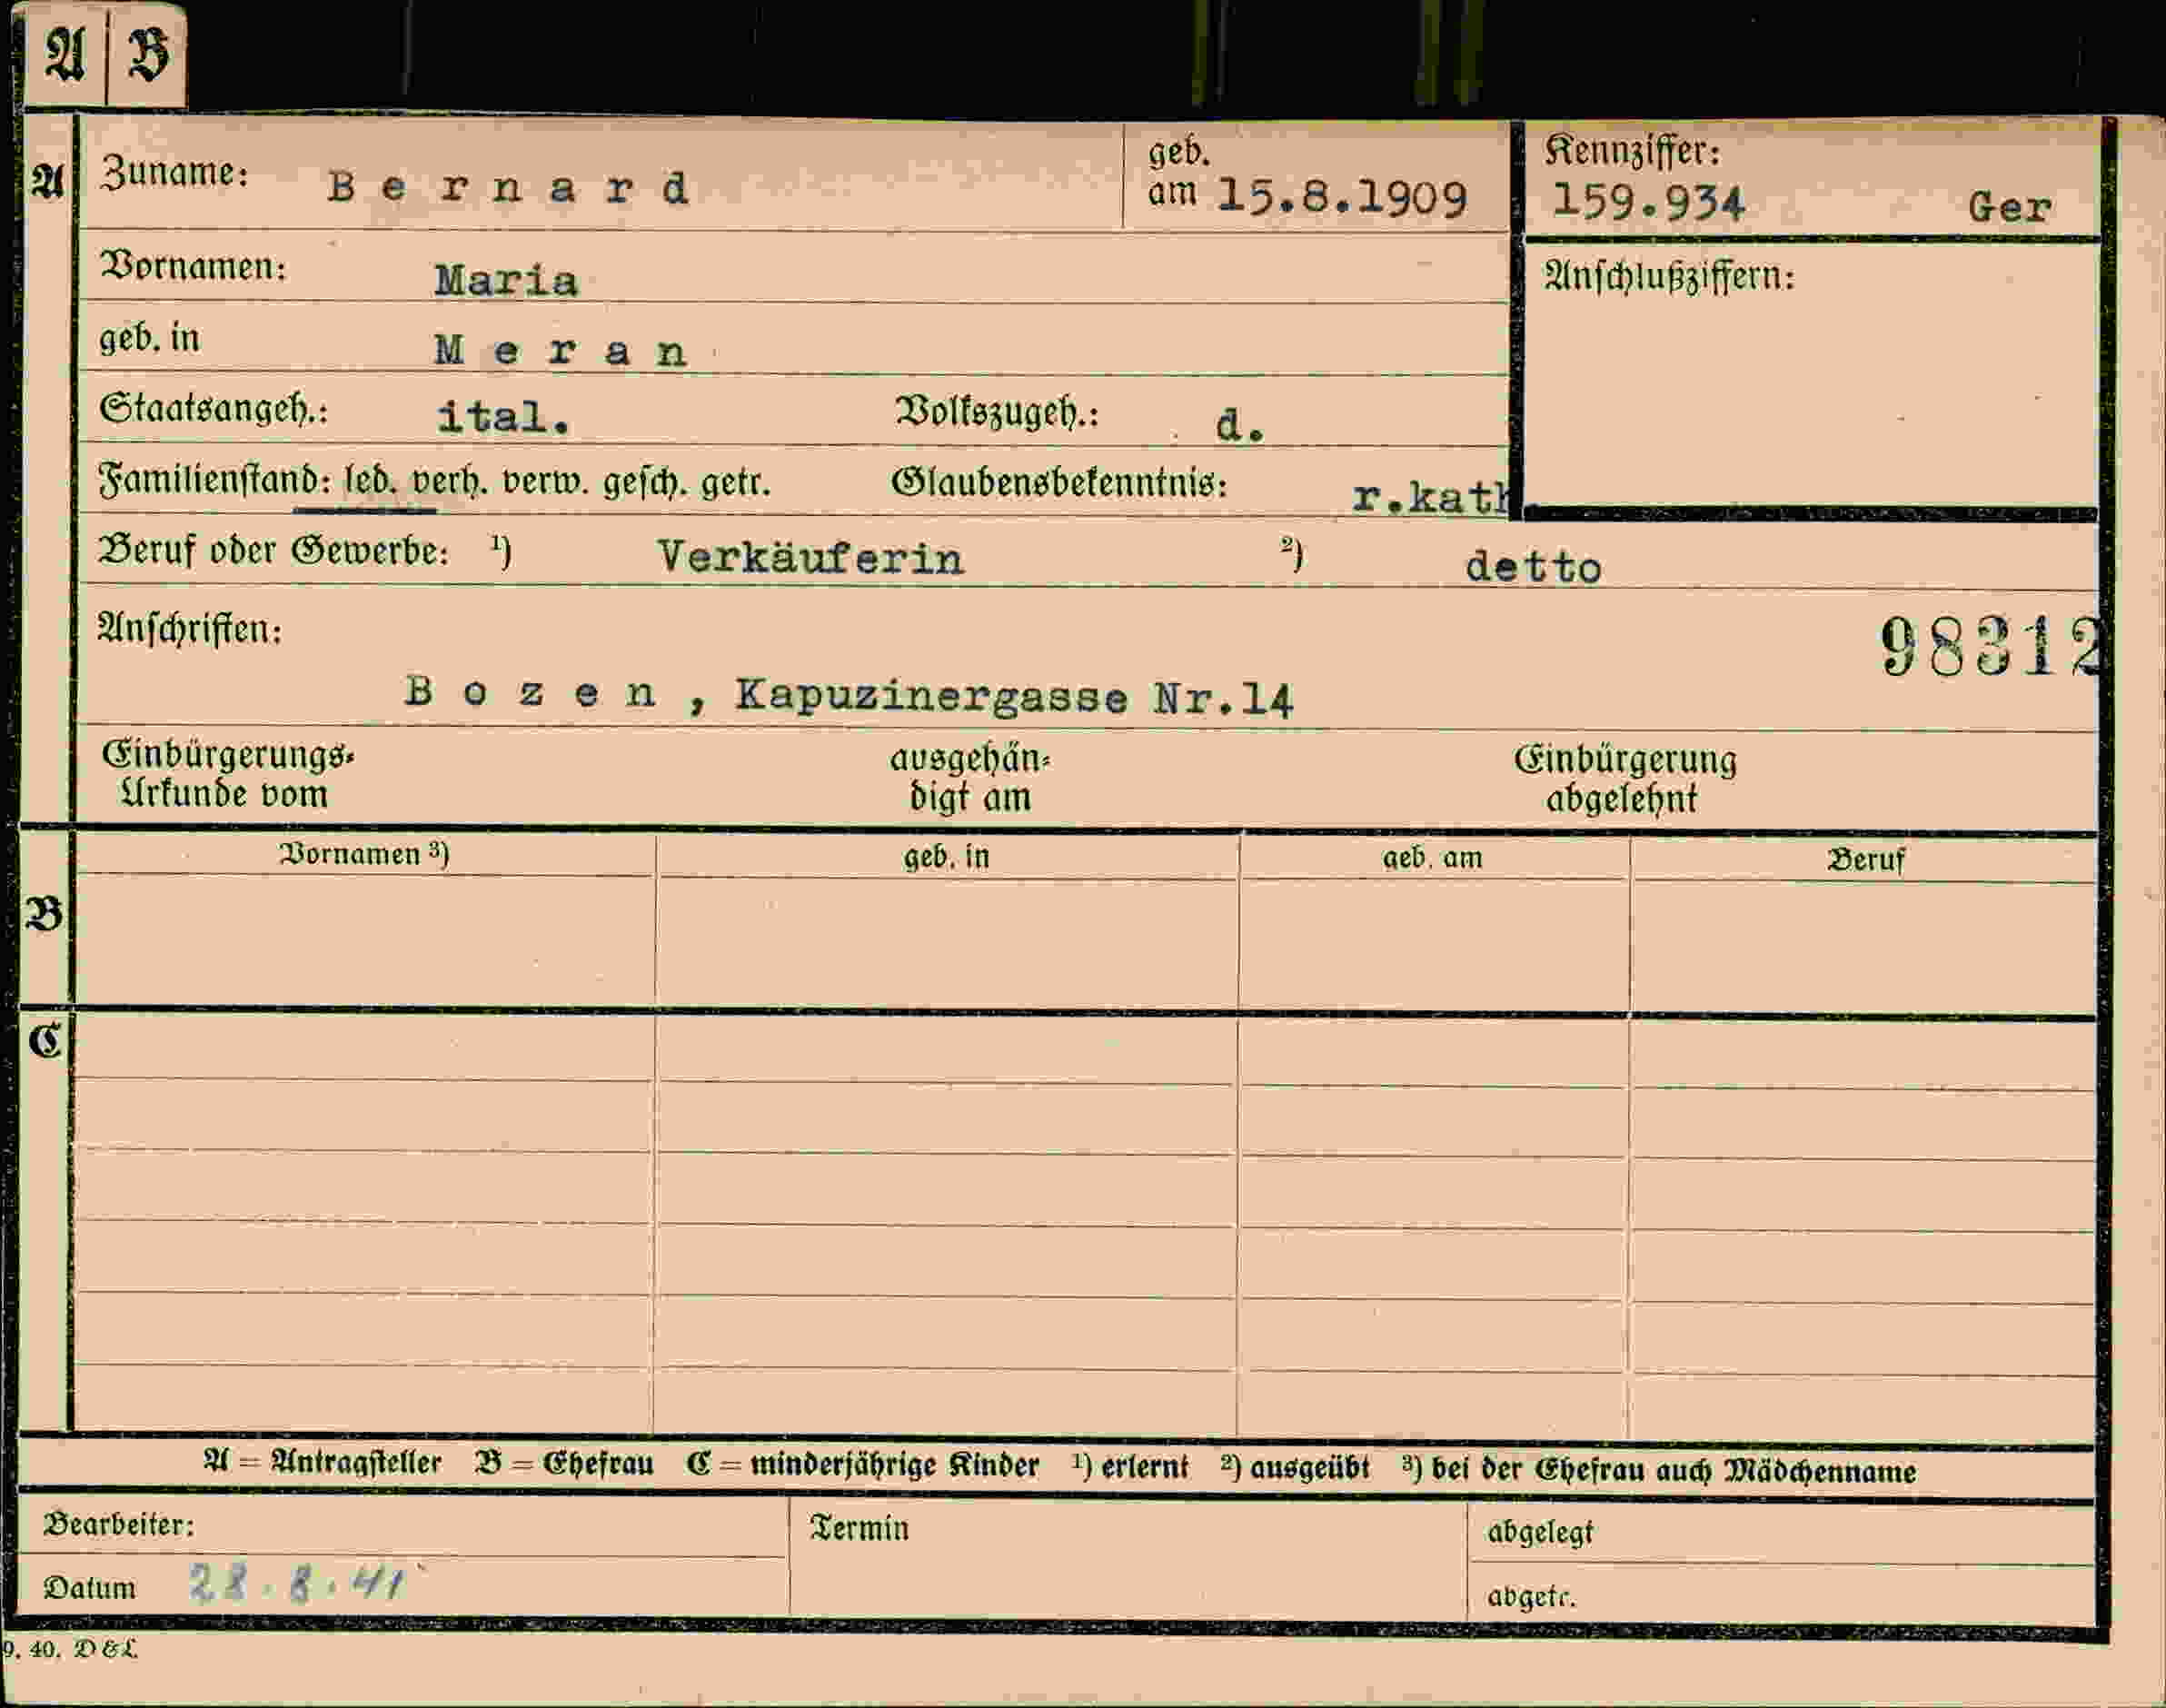 A B
A Zuname: Bernard geb. am 15.8.1909 Kennziffer: 159.934 Ger
Vornamen: Maria Anschlußziffern:
geb. in Meran
Staatsangeh.: ital. Volkszugeh.: d.
Familienstand: led. verh. verw. gesch. getr. Glaubensbekenntnis: r.kath
Beruf oder Gewerbe: 1) Verkäuferin 2) detto
Anschriften: 98312
Bozen, Kapuzinergasse Nr.14
Einbürgerungs- ausgehän- Einbürgerung
Urkunde vom digt am abgelehnt
Vornamen 3) geb. in geb. am Beruf
B
C
A = Antragsteller B = Ehefrau C = minderjährige Kinder 1) erlernt 2) ausgeübt 3) bei der Ehefrau auch Mädchenname
Bearbeiter: Termin abgelegt
Datum 28.8.41 abgetr.
9. 40. D & L.